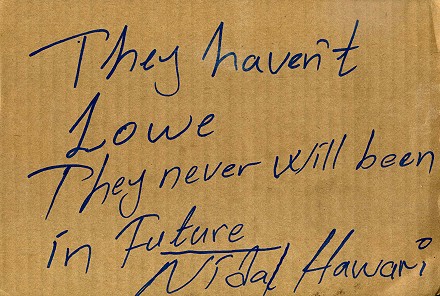 They haven't
Lowe
They never will been
in Future
Nidal Hawari